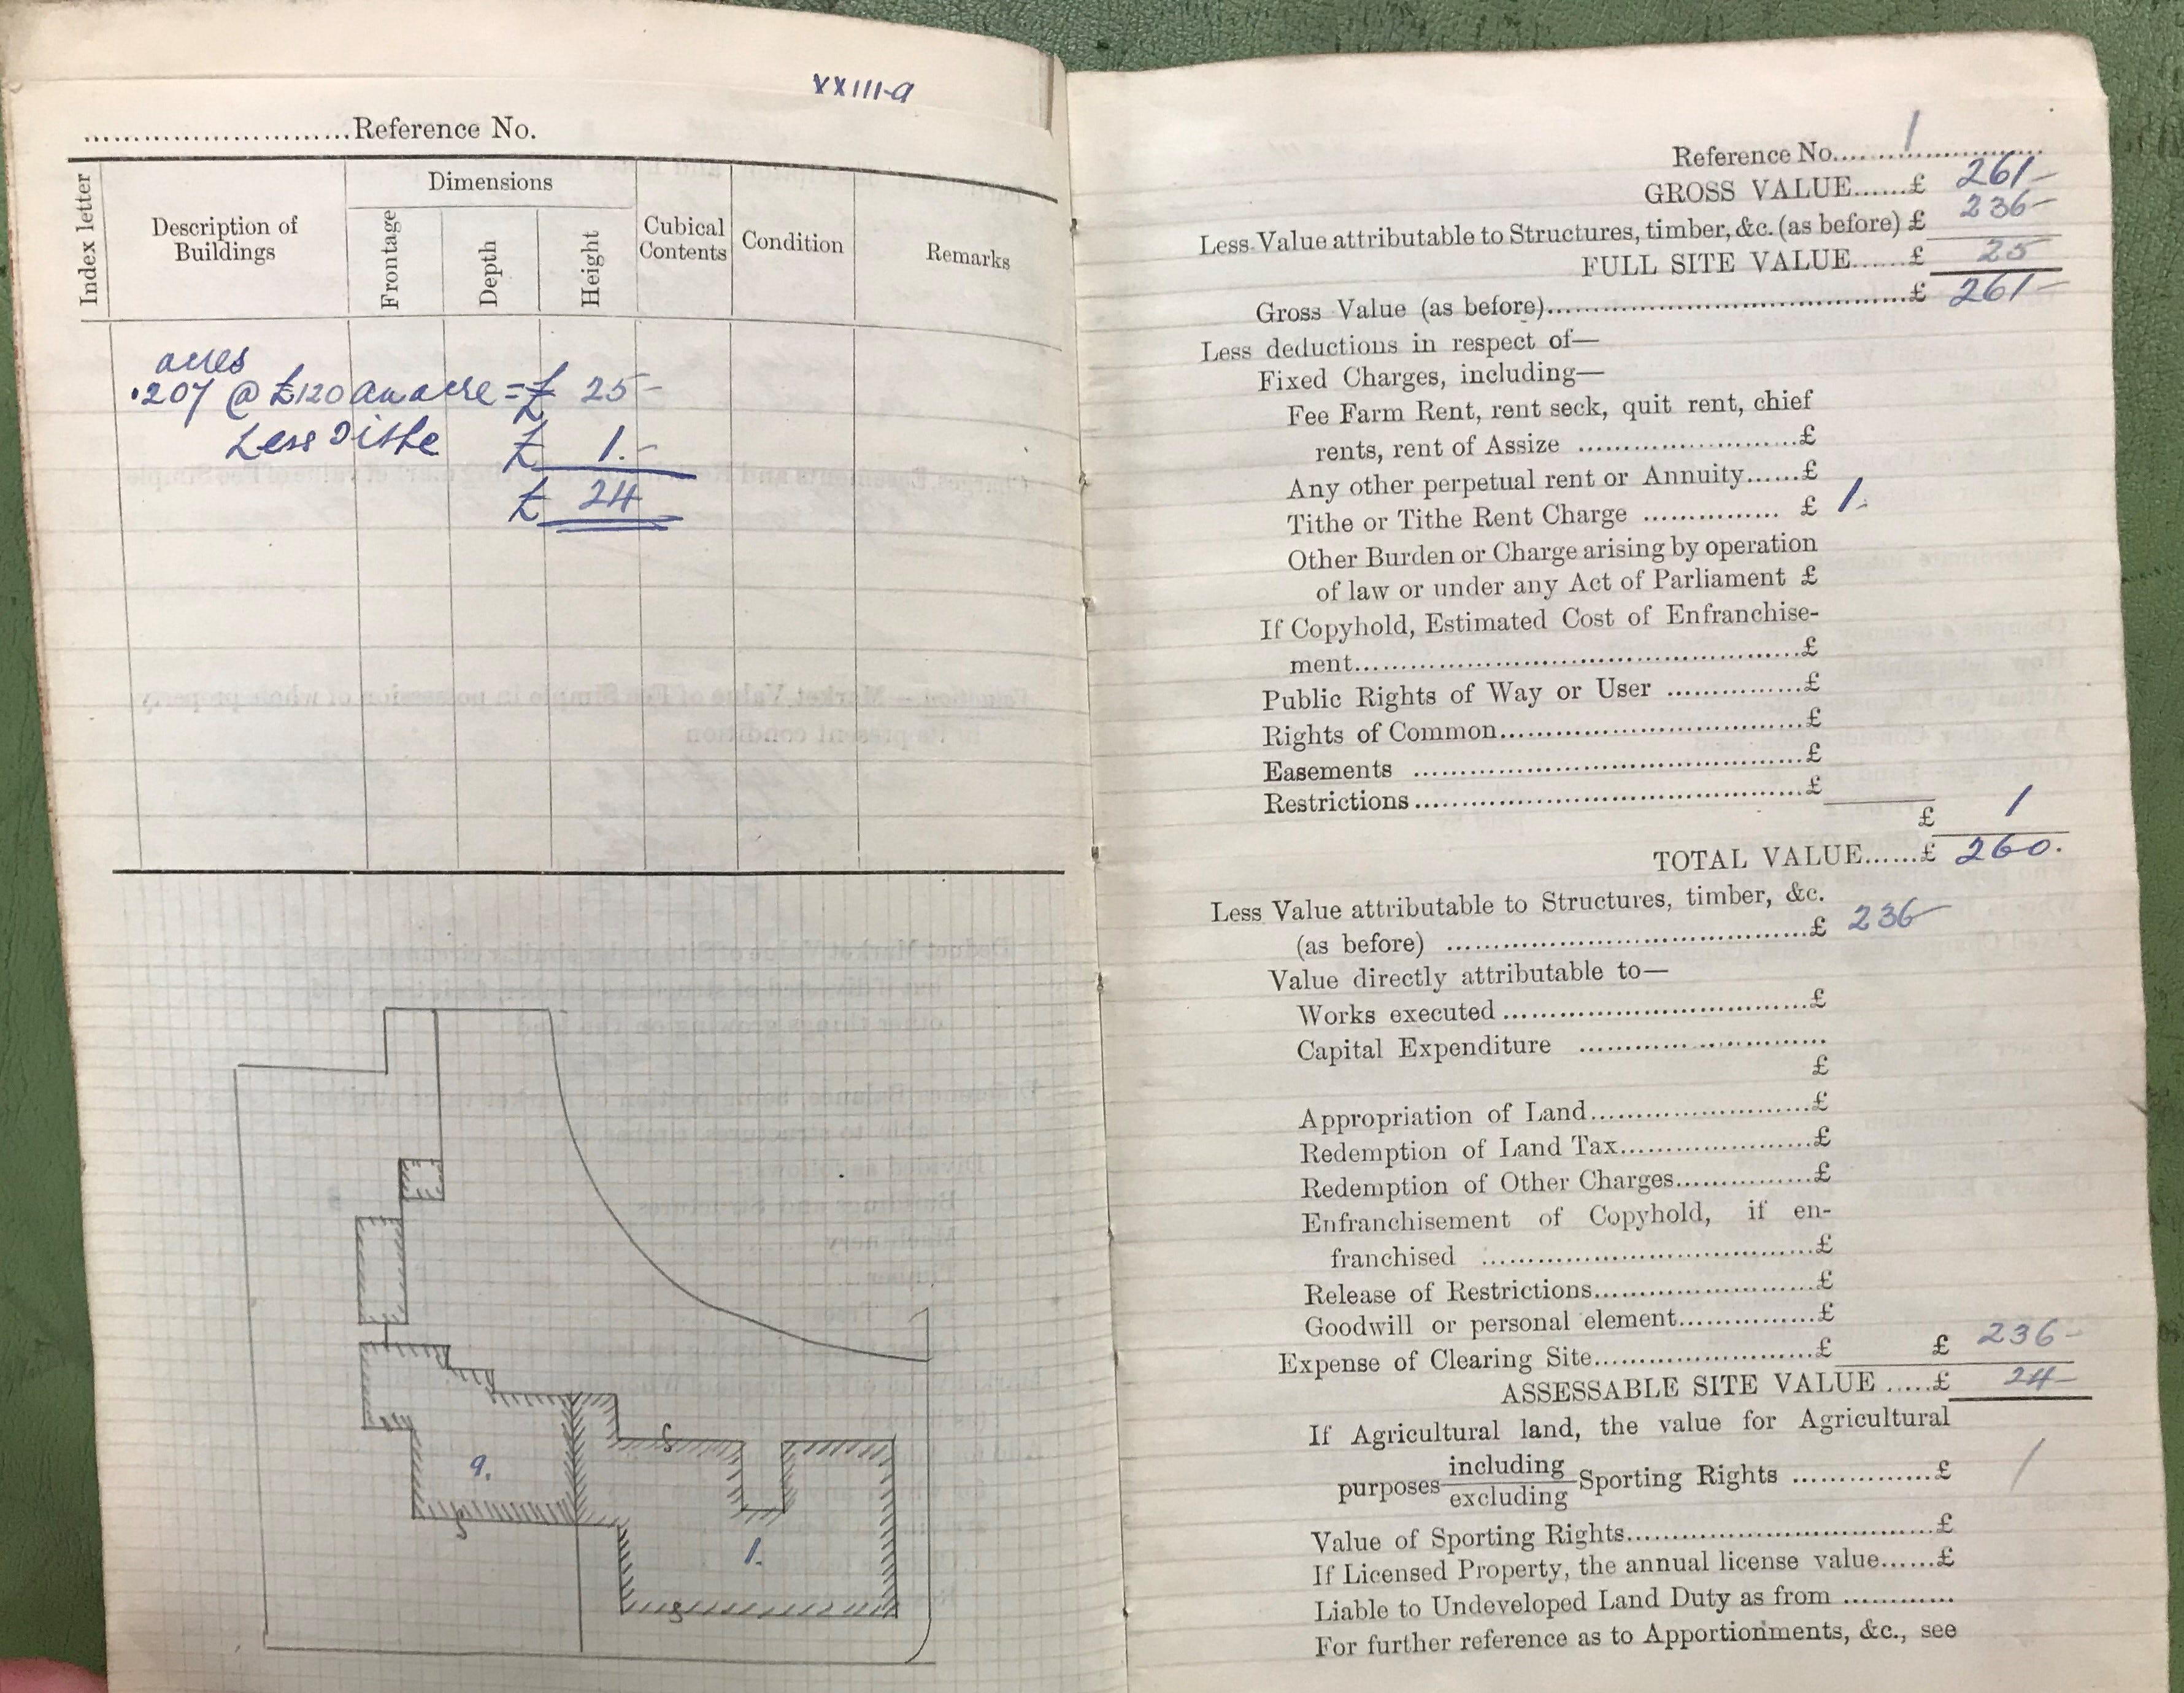 XXIII-9
...........................Reference No.
Index letter
Description of Buildings
Dimensions
Frontage
Depth
Height
Cubical Contents
Condition
Remarks
acres
.207 @ £120 an acre = £ 25-
Less Tithe £ 1.-
£ 24
9.
1.
Reference No. 1
GROSS VALUE......£ 261-
Less Value attributable to Structures, timber, &c. (as before) £ 236-
FULL SITE VALUE......£ 25
Gross Value (as before)..........£ 261-
Less deductions in respect of—
Fixed Charges, including—
Fee Farm Rent, rent seck, quit rent, chief
rents, rent of Assize ..........£
Any other perpetual rent or Annuity......£
Tithe or Tithe Rent Charge .......... £ 1.-
Other Burden or Charge arising by operation
of law or under any Act of Parliament £
If Copyhold, Estimated Cost of Enfranchise-
ment..........£
Public Rights of Way or User ..........£
Rights of Common..........£
Easements ..........£
Restrictions..........£
£ 1
TOTAL VALUE......£ 260.
Less Value attributable to Structures, timber, &c.
(as before) ..........£ 236-
Value directly attributable to—
Works executed..........£
Capital Expenditure ..........
£
Appropriation of Land..........£
Redemption of Land Tax..........£
Redemption of Other Charges..........£
Enfranchisement of Copyhold, if en-
franchised ..........£
Release of Restrictions..........£
Goodwill or personal element..........£
Expense of Clearing Site..........£ £ 236-
ASSESSABLE SITE VALUE .....£ 24-
If Agricultural land, the value for Agricultural
purposes including/excluding Sporting Rights ..........£ /
Value of Sporting Rights..........£
If Licensed Property, the annual license value......£
Liable to Undeveloped Land Duty as from ............
For further reference as to Apportionments, &c., see